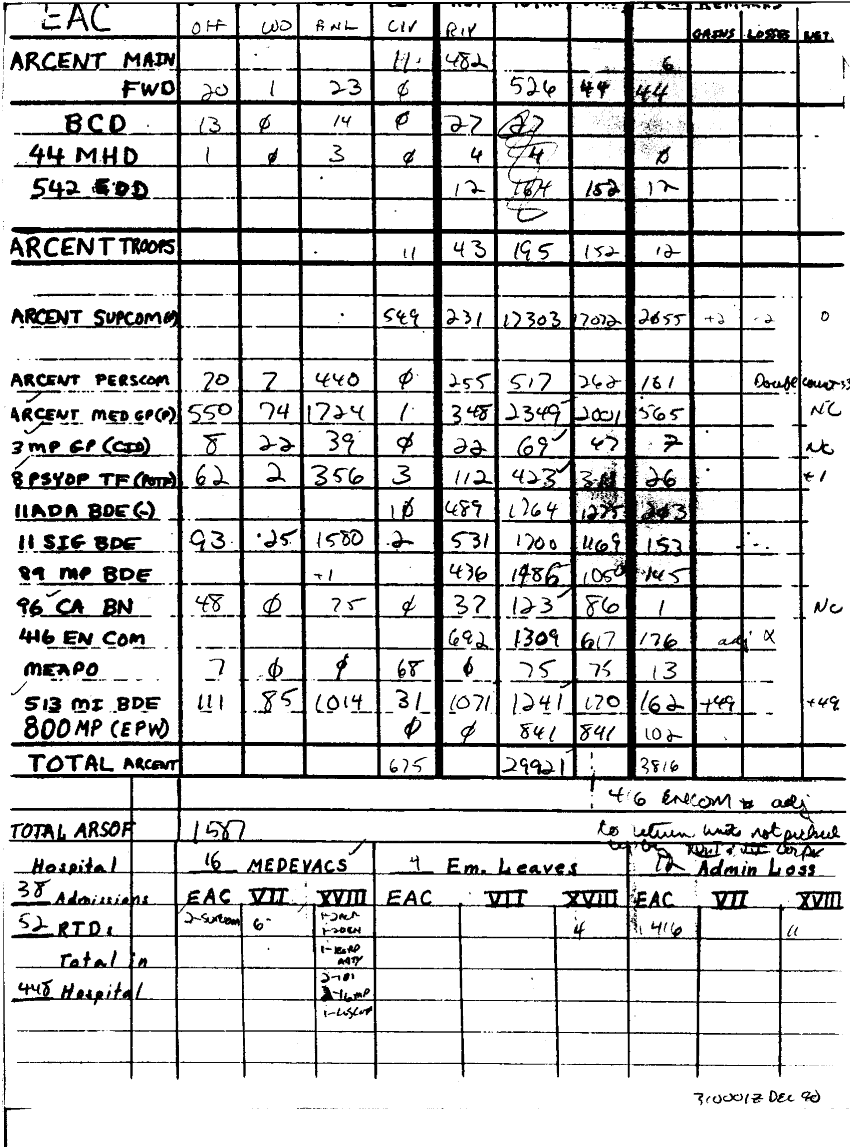 EAC OFF WO ENL CIV REMARKS
GAINS LOSSES NET.
ARCENT MAIN 11 482 6
FWD 20 1 23 ∅ 526 44 44
BCD 13 ∅ 14 ∅ 27 27
44 MHD 1 ∅ 3 ∅ 4 4 ∅
542 EOD 12 164 152 12
ARCENT TROOPS 11 43 195 152 12
ARCENT SUPCOM(P) 549 231 17303 17072 2655 +2 -2 0
ARCENT PERSCOM 70 7 440 ∅ 255 517 262 161 Double
ARCENT MED GP(P) 550 74 1724 1 348 2349 2001 565 NC
3 MP GP (CID) 8 22 39 ∅ 22 69 47 7 NC
8 PSYOP TF 62 2 356 3 112 423 26 +1
11 ADA BDE (-) 1∅ 489 1764 1275 203
11 SIG BDE 93 25 1580 2 531 1700 1169 153
89 MP BDE +1 436 1486 1050 145
96 CA BN 48 ∅ 75 ∅ 37 123 86 1 NC
416 EN COM 692 1309 617 176 adj
MEAPO 7 ∅ ∅ 68 ∅ 75 75 13
513 MI BDE 111 85 1014 31 1071 1241 170 162 +49 +49
800 MP (EPW) ∅ ∅ 841 841 102
TOTAL ARCENT 675 29921 3816
416 ENCOM adj
TOTAL ARSOF 1587 to return units not
Hospital 16 MEDEVACS 4 Em. Leaves 12 Admin Loss
38 Admissions EAC VII XVIII EAC VII XVIII EAC VII XVIII
52 RTDs 2-SUPCOM 6 4 1 416 11
Total in
448 Hospital
310001Z DEC 90